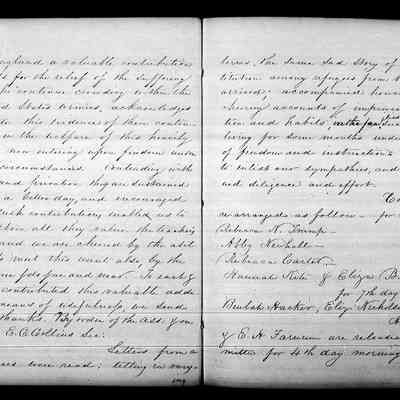 England a valuable contribution
s for the relief of the suffering
continue crowding within the
d States Armies, acknowledges
this evidence of their contin
in the welfare of this heavily
now entering upon freedom under
circumstances. Contending with
and privation they are sustained
a better day, and encouraged
such contributions enabled us to
them all they value the teaching
and we are cheered by the abil
to meet this want also by the
friends far and near. To each
contributed this valuable adde
means of usefulness, we send
thanks. By order of the Ass. of wom
E. C. Collins Sec.
Letters from a
ces were read; telling in vary-
ing
terms. The same sad story of
titution among refugees from
arrived; accompanied
cheering accounts of improve
tion and habits,
living for some months under
of freedom and instruction
to enlist our sympathies, and
ued diligence and effort.
Co
is arranged as follows - for
Rebecca N. Trump-
Abby Newhall-
Rebecca Carter-
Hannah Kite & Eliza B
for 7th day
Beulah Hacker, Eliz Nicholso
& E. H. Farnum are released
mittee for 4th day morning